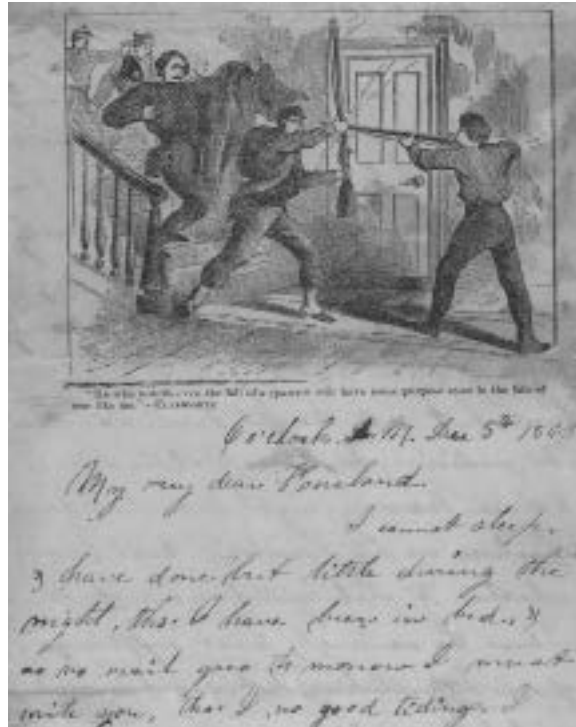 "He who notes even the fall of a sparrow will have some purpose even in the fate of
one like me."—ELLSWORTH
6 o'clock A M. Dec 5th
My very dear
I cannot sleep.
have done but little during the
night, tho. I have been in bed.
as no mail goes to morrow I must
write you, tho I no good tidings. I